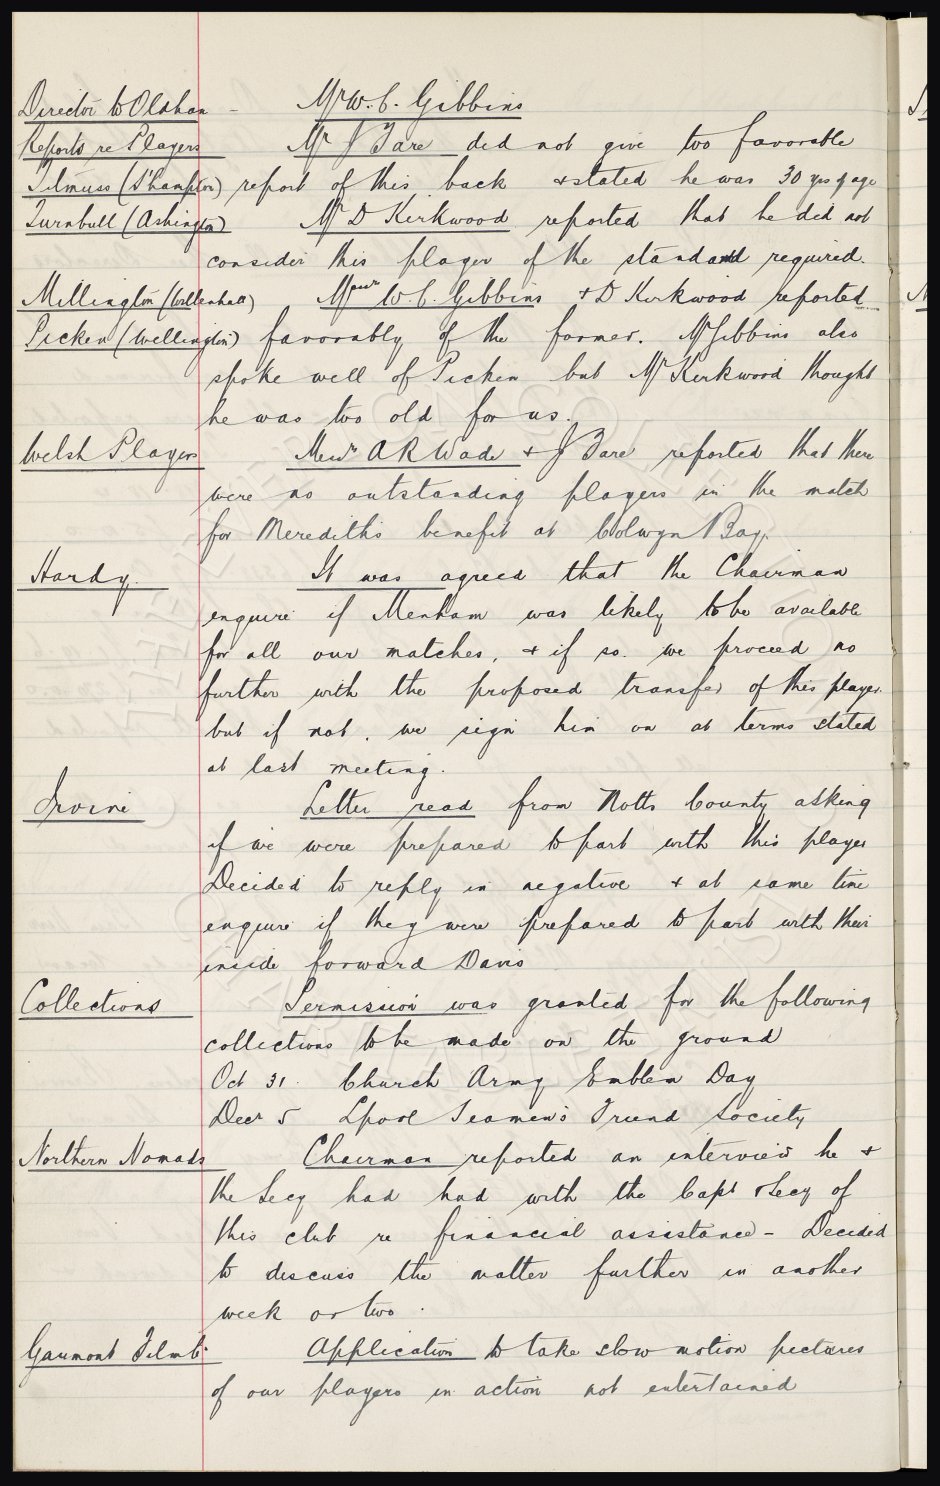 Director to Oldham - Mr W. C. Gibbins
Reports re Players Mr J Fare did not give too favorable
Titmuss (S'hampton) report of this back & stated he was 30 yrs of age
Turnbull (Ashington) Mr D Kirkwood reported that he did not
consider this player of the standard required.
Millington (Willenhall) Messrs W. C. Gibbins & D Kirkwood reported
Picken (Wellington) favorably of the former. Mr Gibbins also
spoke well of Picken but Mr Kirkwood thought
he was too old for us.
Welsh Players Messrs A R Wade & J Fare reported that there
were no outstanding players in the match
for Merediths benefit at Colwyn Bay.
Hardy. It was agreed that the Chairman
enquire if Menham was likely to be available
for all our matches, & if so we proceed no
further with the proposed transfer of this player.
but if not, we sign him on at terms stated
at last meeting.
Irvine Letter read from Notts County asking
if we were prepared to part with this player
Decided to reply in negative & at same time
enquire if they were prepared to part with their
inside forward Davis
Collections Permission was granted for the following
collections to be made on the ground
Oct 31. Church Army Emblem Day
Decr 5 Lpool Seamen's Friend Society
Northern Nomads Chairman reported an interview he &
the Secy had had with the Capt & Secy of
this club re financial assistance - Decided
to discuss the matter further in another
week or two.
Gaumont Film Co Application to take slow motion pictures
of our players in action not entertained